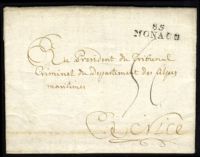 85
MONACO
Au President du Tribunal
Criminel du departement des Alpes
maritimes
A Nice